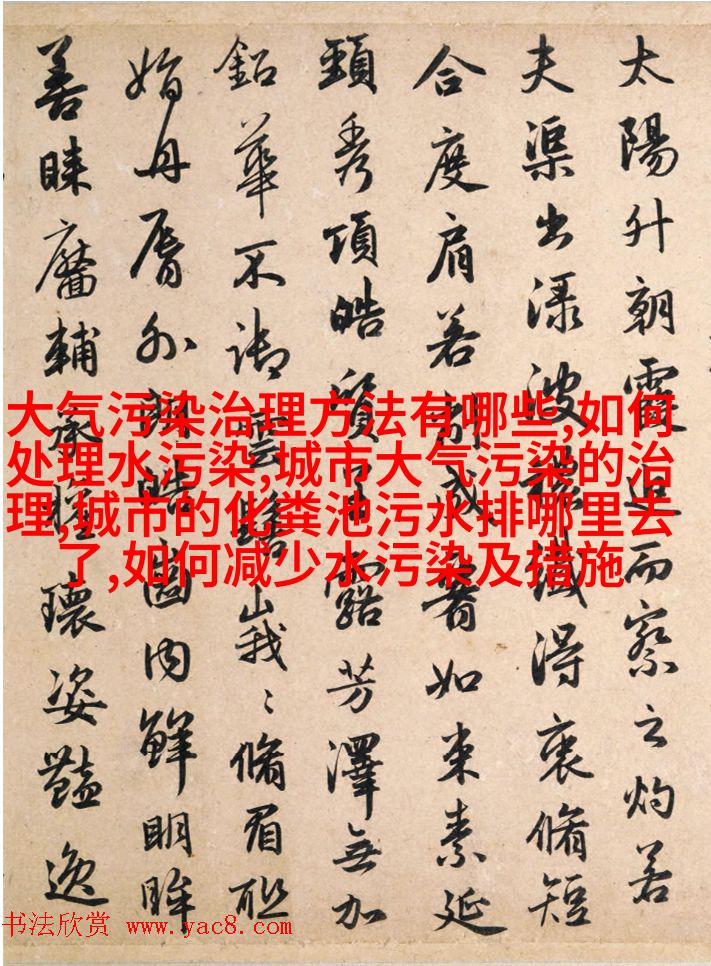 太陽升朝霞迫而察之灼若
夫渠出渌波穠纖得衷脩短
合度肩若削成如束素延
頸秀項皓質呈露芳澤無加
鉛華不御雲髻峩〻脩眉聯
娟丹脣外朗皓齒内鮮明眸
善睞靨輔承權瓌姿豔逸
大气污染治理方法有哪些,如何
处理水污染,城市大气污染的治
理,城市的化粪池污水排哪里去
了,如何减少水污染及措施
书法欣赏 www.yac8.com